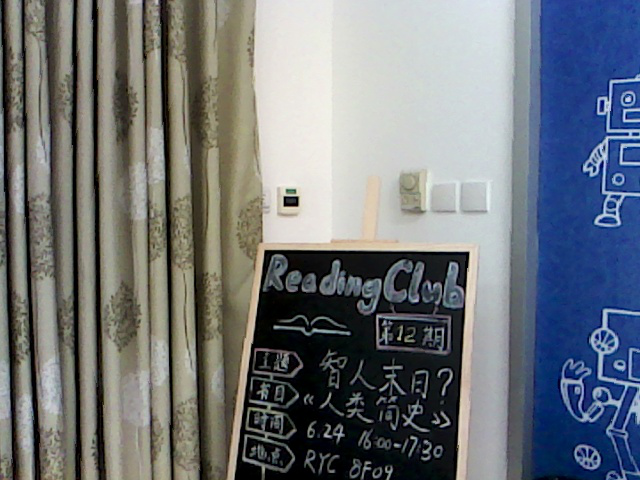 Reading Club
第12期
主题 智人末日?
书目 《人类简史》
时间 6.24 16:00-17:30
地点 RYC 8F09